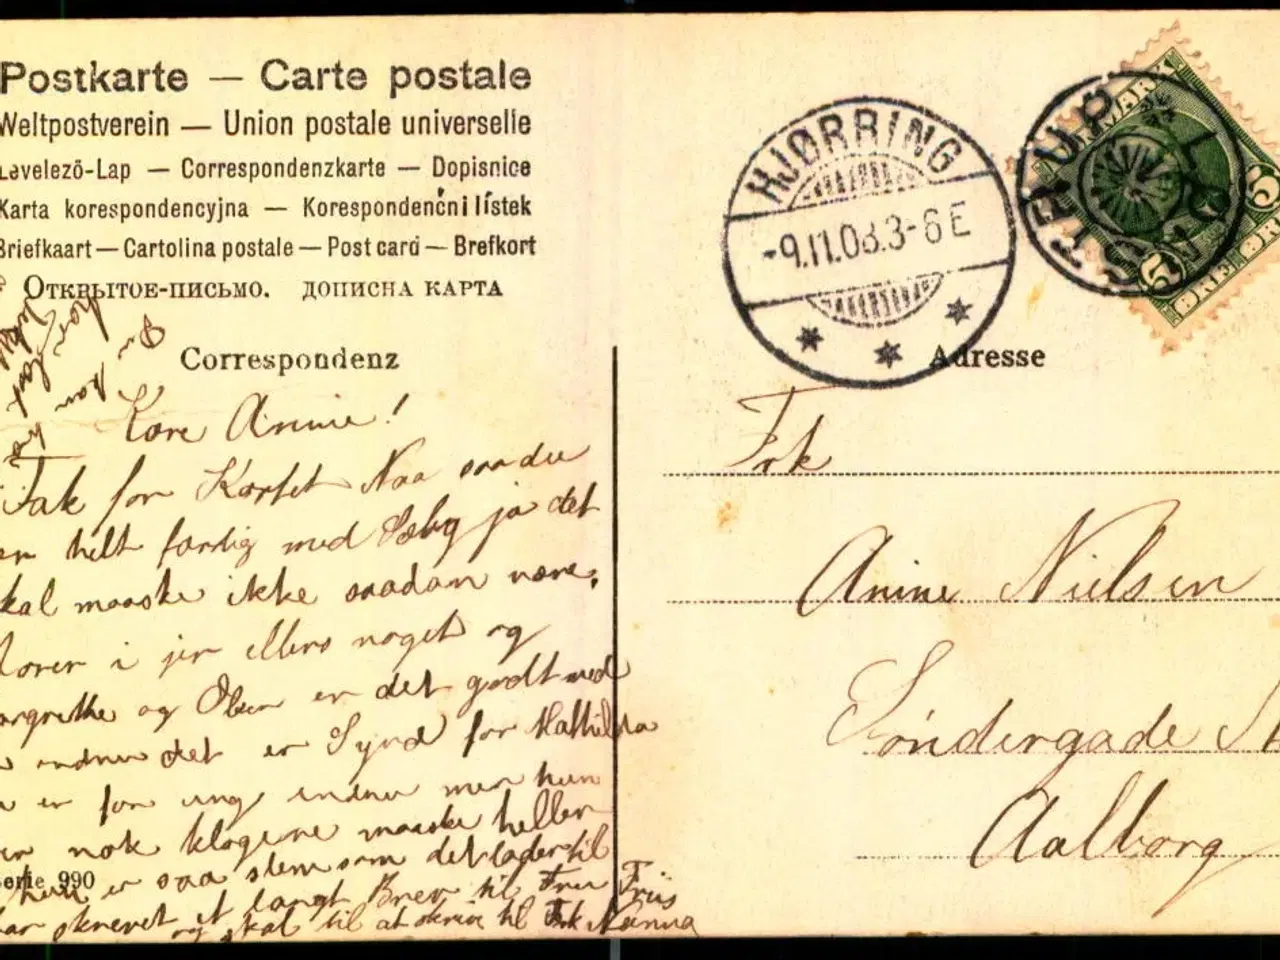 Postkarte — Carte postale
Weltpostverein — Union postale universelle
Levelező-Lap — Correspondenzkarte — Dopisnice
Karta korespondencyjna — Korespondenční lístek
Briefkaart — Cartolina postale — Post card — Brefkort
Открытое-письмо. дописна карта
Correspondenz
Adresse
HJØRRING
-9.11.08.3-6 E
DANMARK
5
5
BREF ØRE
Kære Anine!
Tak for Kortet Naa saa du
er helt færdig med Sæby ja det
skal maaske ikke saadan være.
i jer ellers noget og
Margrethe og Olsen er det godt med
endnu det er Synd for Mathilda
er for ung endnu men hun
er nok klogere maaske heller
hun er saa slem som det lader til
har skrevet et langt Brev til Fru Friis
og skal til at skrive til Frk Nanna
Serie 990
Frk
Anine Nielsen
Søndergade
Aalborg